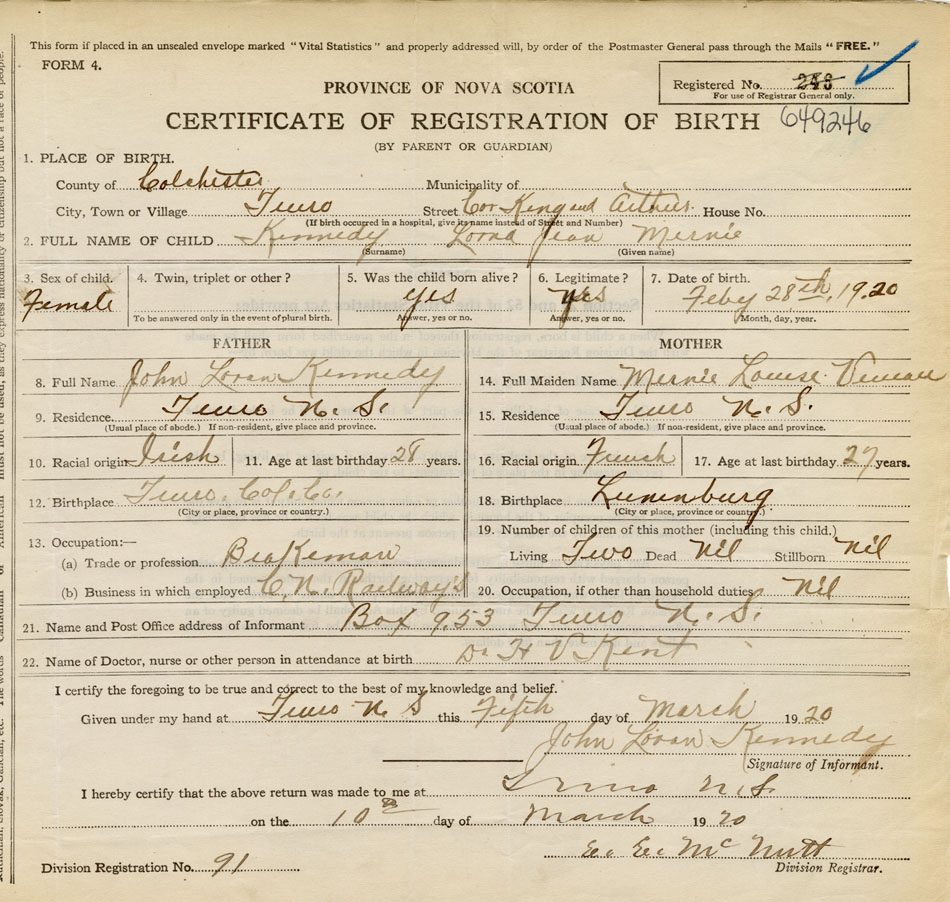 This form if placed in an unsealed envelope marked "Vital Statistics" and properly addressed will, by order of the Postmaster General pass through the Mails "FREE."
FORM 4.
Registered No. 248
For use of Registrar General only.
PROVINCE OF NOVA SCOTIA
CERTIFICATE OF REGISTRATION OF BIRTH 649246
(BY PARENT OR GUARDIAN)
1. PLACE OF BIRTH.
County of Colchester Municipality of
City, Town or Village Truro Street Cor King and Arthur House No.
(If birth occurred in a hospital, give its name instead of Street and Number)
2. FULL NAME OF CHILD Kennedy Lorna Jean Mernie
(Surname) (Given name)
3. Sex of child. Female
4. Twin, triplet or other?
To be answered only in the event of plural birth.
5. Was the child born alive? yes
Answer, yes or no.
6. Legitimate? yes
Answer, yes or no.
7. Date of birth. Feby 28th, 1920
Month, day, year.
FATHER
8. Full Name John Loran Kennedy
9. Residence Truro N. S.
(Usual place of abode.) If non-resident, give place and province.
10. Racial origin Irish 11. Age at last birthday 28 years.
12. Birthplace Truro. Col. Co.
(City or place, province or country.)
13. Occupation:—
(a) Trade or profession Brakeman
(b) Business in which employed C. N. Railway's
MOTHER
14. Full Maiden Name Mernie Louise Veneau
15. Residence Truro N. S.
(Usual place of abode.) If non-resident, give place and province.
16. Racial origin French 17. Age at last birthday 27 years.
18. Birthplace Lunenburg
(City or place, province or country.)
19. Number of children of this mother (including this child.)
Living Two Dead Nil Stillborn Nil
20. Occupation, if other than household duties Nil
21. Name and Post Office address of Informant Box 953 Truro N. S.
22. Name of Doctor, nurse or other person in attendance at birth Dr H V Kent
I certify the foregoing to be true and correct to the best of my knowledge and belief.
Given under my hand at Truro N S this Fifth day of March 1920
John Loran Kennedy
Signature of Informant.
I hereby certify that the above return was made to me at Truro N. S.
on the 10th day of March 1920
E. E. McNutt
Division Registration No. 91 Division Registrar.